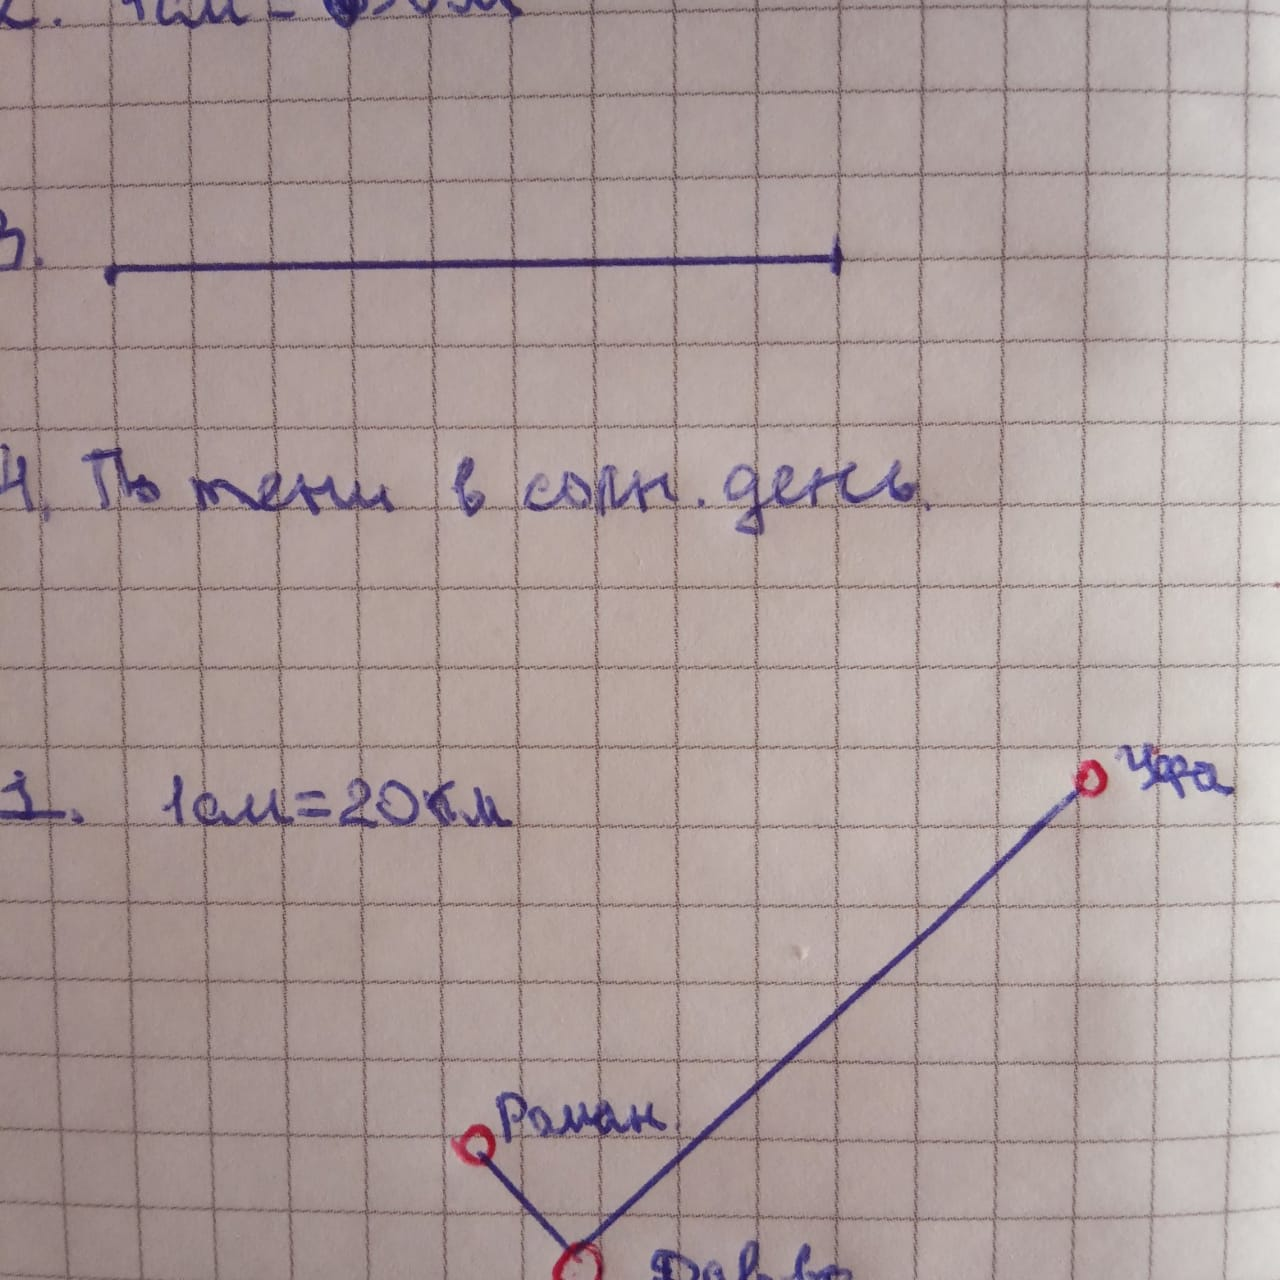 2. 1см =
3.
4. По тени в солн. день.
1. 1см=20км
Уфа
Роман.